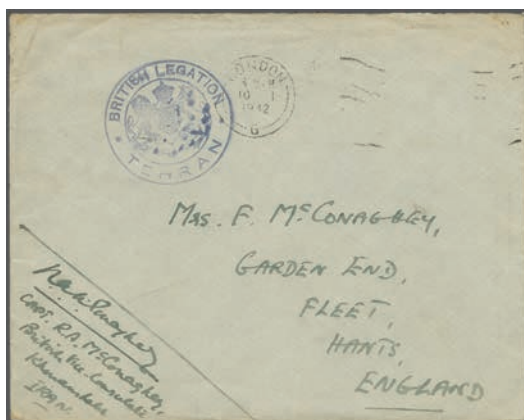 BRITISH LEGATION
TEHRAN
LONDON
10
1942
6
Mrs. F. McCONAGHEY,
GARDEN END,
FLEET,
HANTS,
ENGLAND
CAPT. R.A. McCONAGHEY,
British Vice Consulate
IRAN